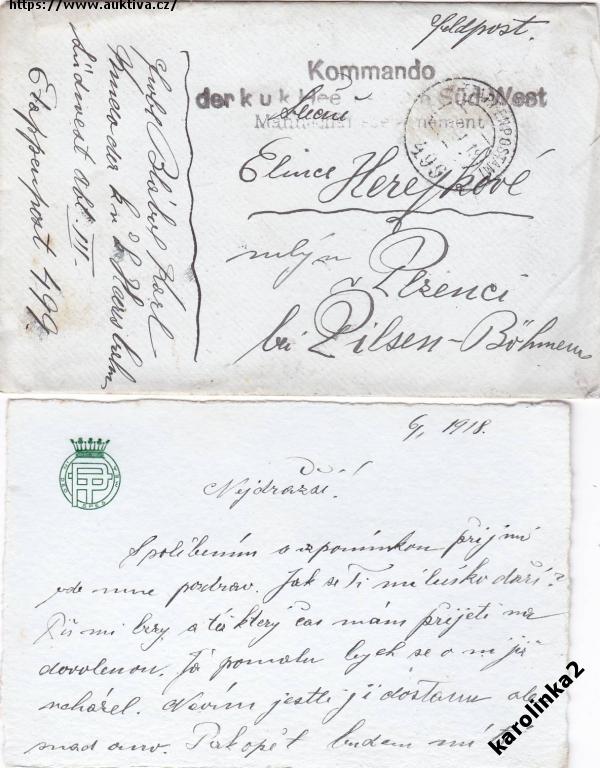 https://www.auktiva.cz/
Feldpost.
Kommando
der k u k Hee Süd-West
Slečni
Elince Herejkové
mlýn Plzenci
bei Pilsen-Böhmen
Karl
Kmdo der k.u.
Südwest Abt III.
Etappenpost 499.
6/1 1918.
Nejdražší!
S políbením a vzpomínkou přijmi
ode mne pozdrav. Jak se Ti miluško daří?
Piš mi brzy, a tá který čas mám přijeti na
dovolenou. Já pomalu bych se o ni již
ucházel. Nevím jestli ji dostanu ale
snad ano. Pak opět budem mí
karolinka2